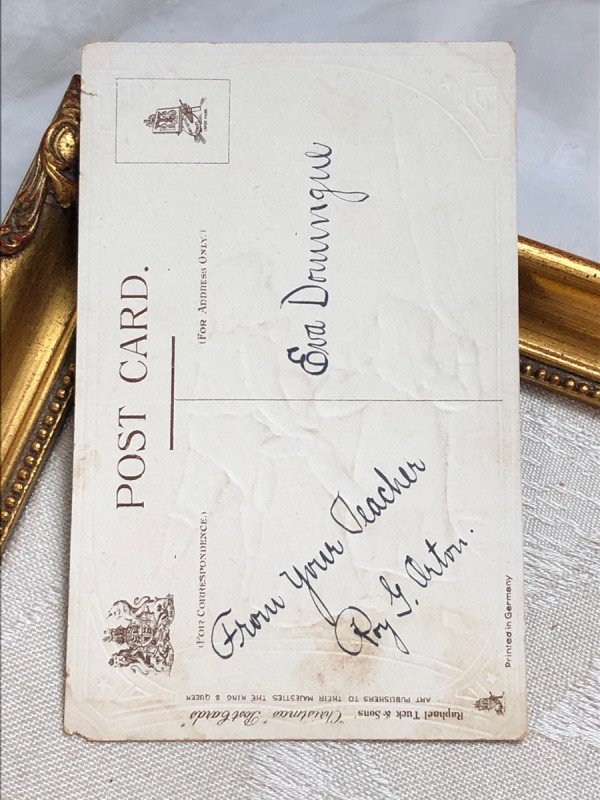 POST CARD.
(FOR CORRESPONDENCE.)
(FOR ADDRESS ONLY.)
From Your Teacher
Roy G. Orton.
Eva Domingue
Raphael Tuck & Sons "Christmas" Post Cards"
ART PUBLISHERS TO THEIR MAJESTIES THE KING & QUEEN
Printed in Germany